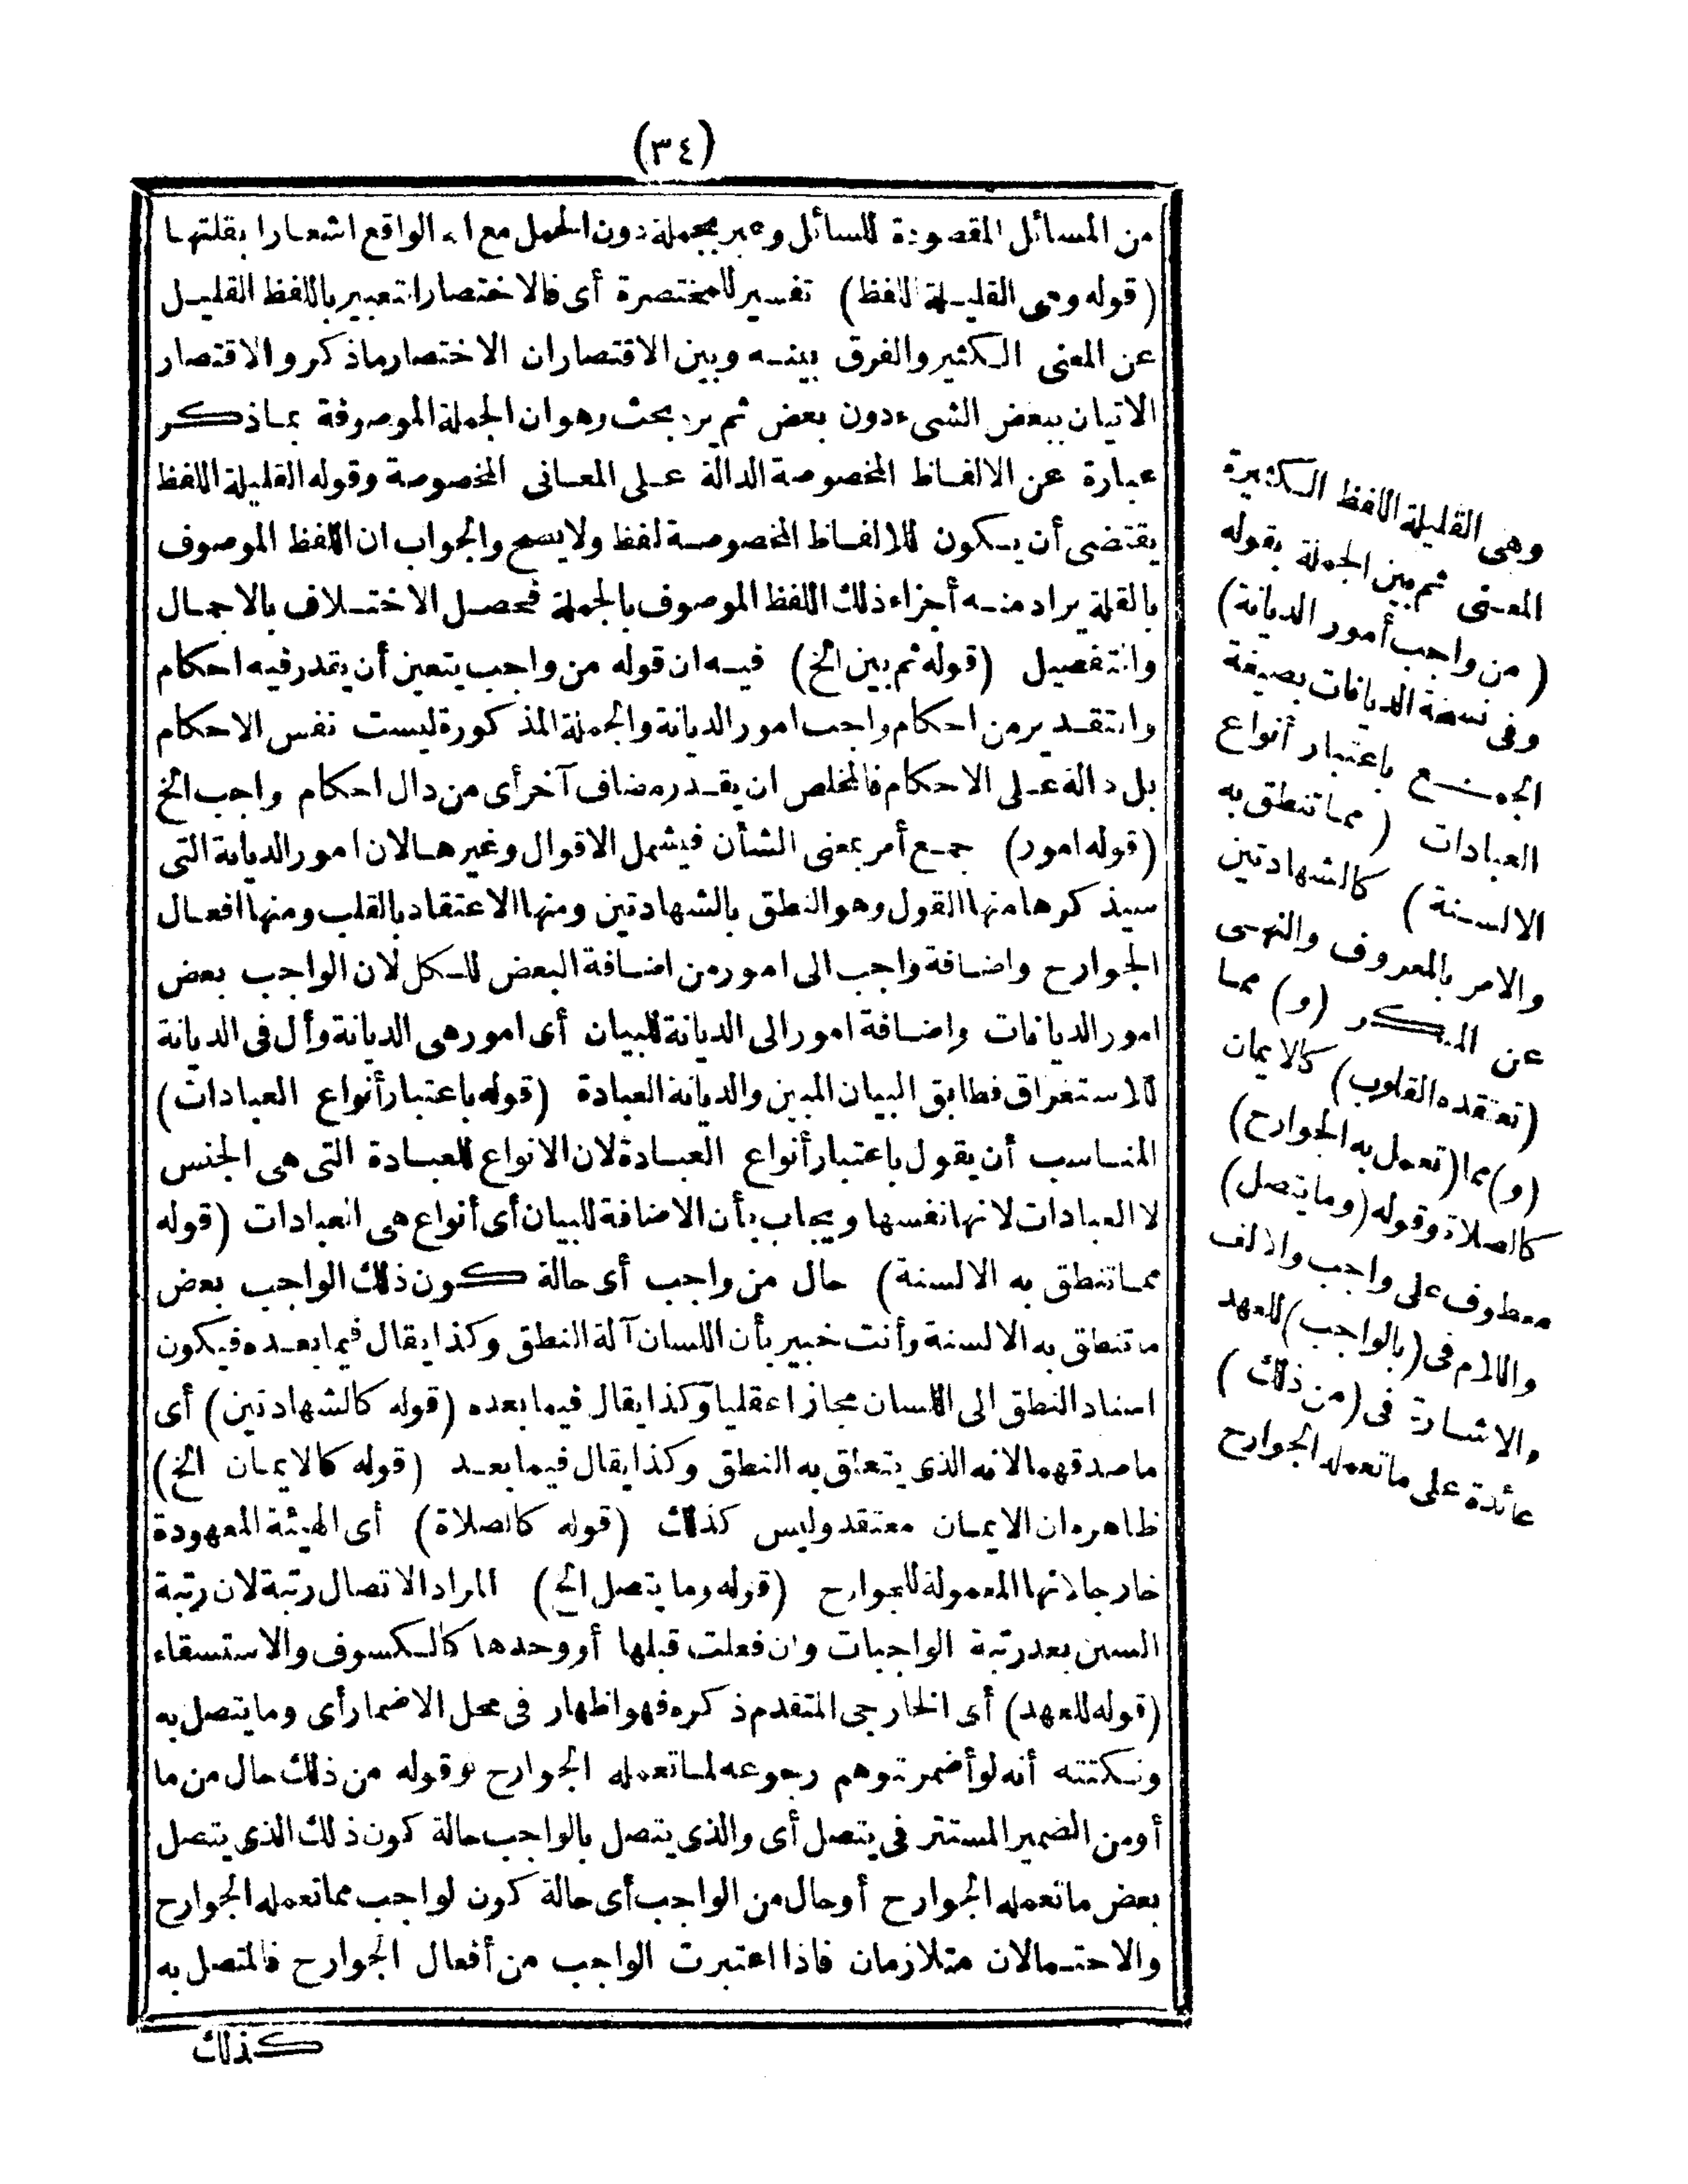 (٣٤)
من المسائل المقصودة للسائل وعبر بجملة دون الجمل مع انه الواقع اشعارا بقلتها
(قوله وهى القليلة اللفظ) تفسير للمختصرة أى فالاختصار التعبير باللفظ القليل
عن المعنى الكثير والفرق بينه وبين الاقتصار ان الاختصار ماذكر والاقتصار
الاتيان ببعض الشىء دون بعض ثم يرد بحث وهو ان الجملة الموصوفة بماذكر
عبارة عن الالفاظ المخصوصة الدالة على المعانى المخصوصة وقوله القليلة اللفظ
يقتضى أن يكون للالفاظ المخصوصة لفظ ولا يصح والجواب ان اللفظ الموصوف
بالقلة يراد منه أجزاء ذلك اللفظ الموصوف بالجملة فحصل الاختلاف بالاجمال
والتفصيل (قوله ثم بين الخ) فيه ان قوله من واجب يتعين أن يقدر فيه احكام
والتقدير من احكام واجب امور الديانة والجملة المذكورة ليست نفس الاحكام
بل دالة على الاحكام فالمخلص ان يقدر مضاف آخر أى من دال احكام واجب الخ
(قوله امور) جمع أمر بمعنى الشأن فيشمل الاقوال وغيرها لان امور الديانة التى
سيذكرها منها القول وهو النطق بالشهادتين ومنها الاعتقاد بالقلب ومنها افعال
الجوارح واضافة واجب الى امور من اضافة البعض للكل لان الواجب بعض
امور الديانات واضافة امور الى الديانة للبيان أى امور هى الديانة وأل فى الديانة
للاستغراق فطابق البيان المبين والديانة العبادة (قوله باعتبار أنواع العبادات)
المناسب أن يقول باعتبار أنواع العبادة لان الانواع للعبادة التى هى الجنس
لا العبادات لانها نفسها ويجاب بأن الاضافة للبيان أى أنواع هى العبادات (قوله
مما تنطق به الالسنة) حال من واجب أى حالة كون ذلك الواجب بعض
ما تنطق به الالسنة وأنت خبير بأن اللسان آلة النطق وكذا يقال فيما بعده فيكون
اسناد النطق الى اللسان مجازا عقليا وكذا يقال فيما بعده (قوله كالشهادتين) أى
ماصدقهما لانه الذى يتعلق به النطق وكذا يقال فيما بعد (قوله كالايمان الخ)
ظاهره ان الايمان معتقد وليس كذلك (قوله كالصلاة) أى الهيئة المعهودة
خارجا لانها المعمولة للجوارح (قوله وما يتصل الخ) المراد الاتصال رتبة لان رتبة
السنن بعد رتبة الواجبات وان فعلت قبلها أو وحدها كالكسوف والاستسقاء
(قوله للعهد) أى الخارجى المتقدم ذكره فهو اظهار فى محل الاضمار أى وما يتصل به
ونكتته أنه لو أضمر توهم رجوعه لما تعمله الجوارح وقوله من ذلك حال من ما
أو من الضمير المستتر فى يتصل أى والذى يتصل بالواجب حالة كون ذلك الذى يتصل
بعض ما تعمله الجوارح أو حال من الواجب أى حالة كون لواجب مما تعمله الجوارح
والاحتمالان متلازمان فاذا اعتبرت الواجب من أفعال الجوارح فالمتصل به
كذلك
وهى القليلة اللفظ الكثيرة
المعنى ثم بين الجملة بقوله
(من واجب أمور الديانة)
وفى نسخة الديانات بصيغة
الجمع باعتبار أنواع
العبادات (مما تنطق به
الالسنة) كالشهادتين
والامر بالمعروف والنهى
عن المنكر (و) مما
(تعتقده القلوب) كالايمان
(و) مما (تعمل به الجوارح)
كالصلاة وقوله (وما يتصل)
معطوف على واجب والالف
واللام فى (بالواجب) للعهد
والاشارة فى (من ذلك)
عائدة على ما تعمله الجوارح